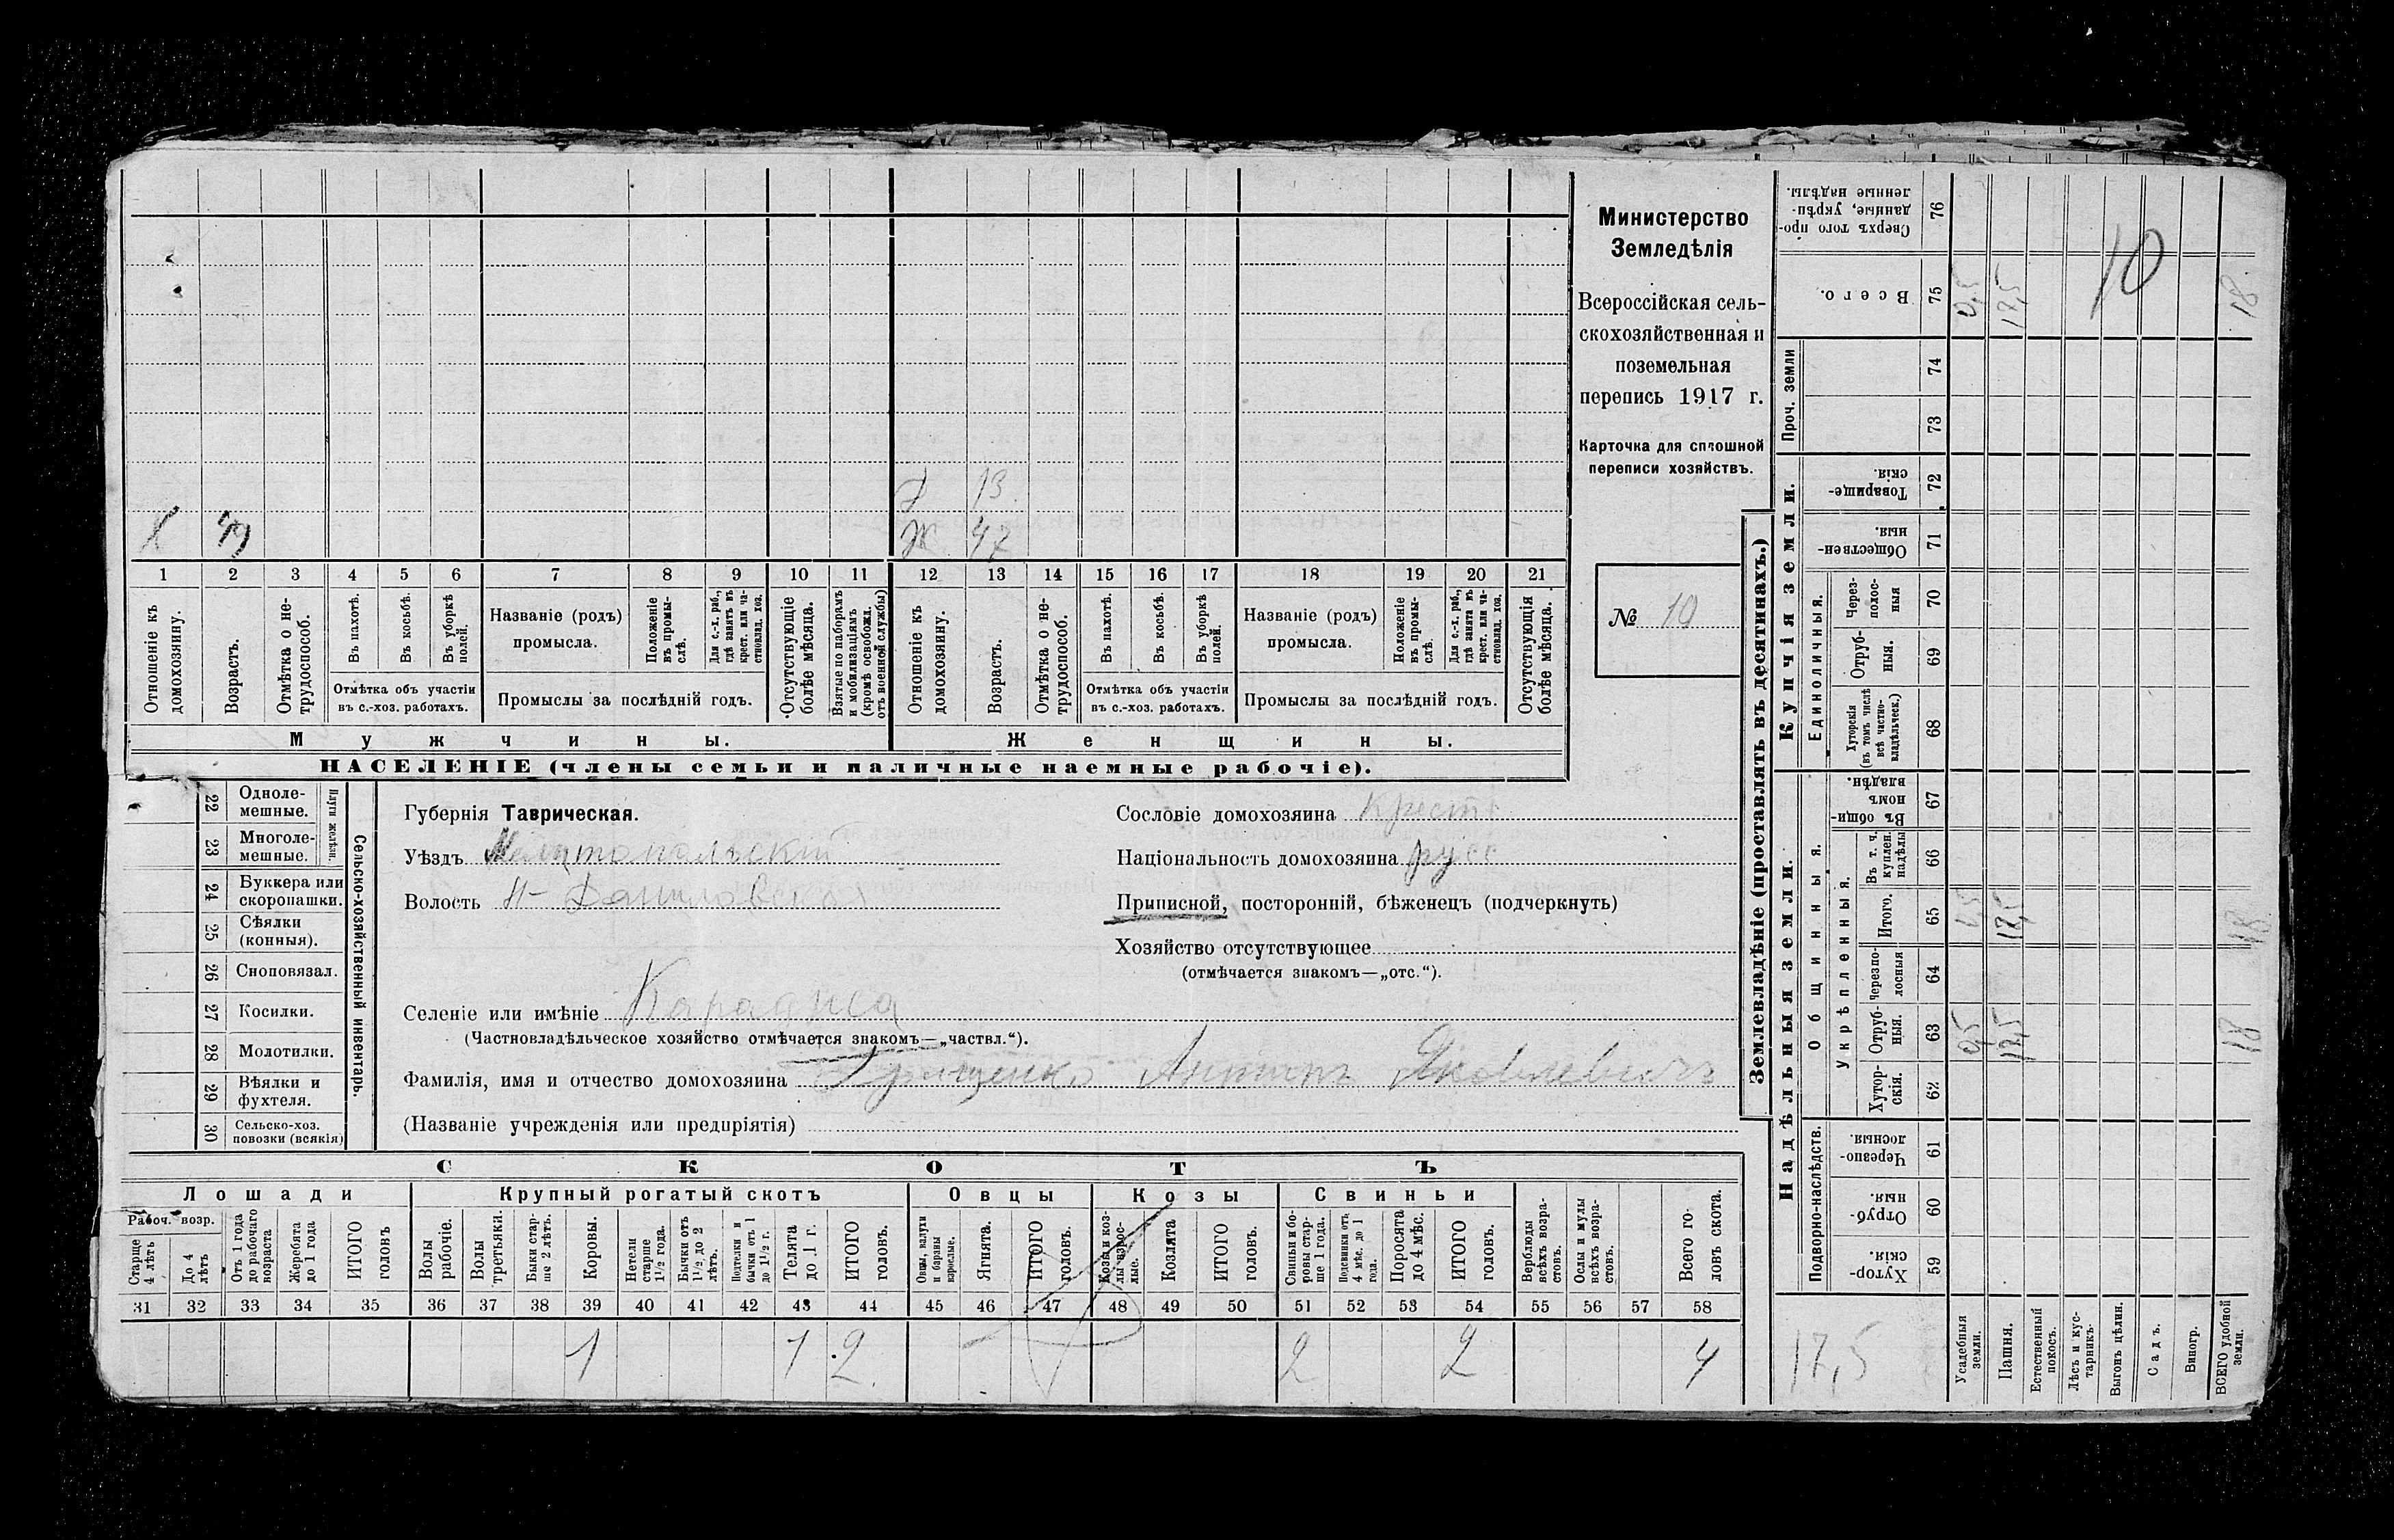 Д 13
Х 49 Ж 47
1 2 3 4 5 6 7 8 9 10 11 12 13 14 15 16 17 18 19 20 21
Отношеніе къ домохозяину.
Возрастъ.
Отмѣтка о нетрудоспособ.
Въ пахотѣ.
Въ косьбѣ.
Въ уборкѣ полей.
Отмѣтка объ участіи
въ с.-хоз. работахъ.
Названіе (родъ)
промысла.
Положеніе въ промыслѣ.
Для с.-х. раб., гдѣ занятъ въ крест. или частновлад. хоз.
Промыслы за послѣдній годъ.
Отсутствующіе болѣе мѣсяца.
Взятые по наборамъ и мобилизаціямъ (кромѣ освобожд. отъ военной службы)
Отношеніе къ домохозяину.
Возрастъ.
Отмѣтка о нетрудоспособ.
Въ пахотѣ.
Въ косьбѣ.
Въ уборкѣ полей.
Отмѣтка объ участіи
въ с.-хоз. работахъ.
Названіе (родъ)
промысла.
Положеніе въ промыслѣ.
Для с.-х. раб., гдѣ занята въ крест. или частновлад. хоз.
Промыслы за послѣдній годъ.
Отсутствующія болѣе мѣсяца.
Мужчины. Женщины.
НАСЕЛЕНІЕ (члены семьи и наличные наемные рабочіе).
Министерство
Земледѣлія
Всероссійская сель-
скохозяйственная и
поземельная
перепись 1917 г.
Карточка для сплошной
переписи хозяйствъ.
№ 10
Сельско-хозяйственный инвентарь.
Плуги желѣзн.
22 Однолемешные.
23 Многолемешные.
24 Буккера или скоропашки.
25 Сѣялки (конныя).
26 Сноповязал.
27 Косилки.
28 Молотилки.
29 Вѣялки и фухтеля.
30 Сельско-хоз. повозки (всякія)
Губернія Таврическая.
Уѣздъ Мелитопольскій
Волость Н-Даниловская
Селеніе или имѣніе
(Частновладѣльческое хозяйство отмѣчается знакомъ—„частвл.“).
Фамилія, имя и отчество домохозяина Яковлевичъ
(Названіе учрежденія или предпріятія)
Сословіе домохозяина Крест
Національность домохозяина русс
Приписной, посторонній, бѣженецъ (подчеркнуть)
Хозяйство отсутствующее
(отмѣчается знакомъ—„отс.“).
СКОТЪ
Лошади Крупный рогатый скотъ Овцы Козы Свиньи
Рабоч. возр.
Старше 4 лѣтъ
До 4 лѣтъ
Отъ 1 года до рабочаго возраста
Жеребята до 1 года
ИТОГО головъ
Волы рабочіе.
Волы третьяки.
Быки старше 2 лѣтъ.
Коровы.
Нетели старше 1 1/2 года.
Бычки отъ 1 1/2 до 2 лѣтъ.
Подтелки и бычки отъ 1 до 1 1/2 г.
Телята до 1 г.
ИТОГО головъ.
Овцы, валухи и бараны взрослые.
Ягнята.
ИТОГО головъ.
Козы и козлы взрослые.
Козлята
ИТОГО головъ.
Свиньи и боровы старше 1 года.
Подсвинки отъ 4 мѣс. до 1 года.
Поросята до 4 мѣс.
ИТОГО головъ.
Верблюды всѣхъ возрастовъ.
Ослы и мулы всѣхъ возрастовъ.
Всего головъ скота.
31 32 33 34 35 36 37 38 39 40 41 42 43 44 45 46 47 48 49 50 51 52 53 54 55 56 57 58
1 1 2 2 2 4
Землевладѣніе (проставлять въ десятинахъ.)
Купчія земли.
Надѣльныя земли.
Сверхъ того проданные, укрѣпленные надѣлы. 76
Всего. 75 0,5 17,5 10 18
Проч. земли 74
73
Товарищескія. 72
Общественныя. 71
Единоличныя.
Черезполосныя 70
Отрубныя. 69
Хуторскія (въ томъ числѣ всѣ частновладѣльческ.) 68
Общинныя.
Въ общинномъ владѣн. 67
Укрѣпленныя.
Въ т. ч. куплен. надѣлы 66
Итого. 65 17,5 18
Черезполосныя 64
Отрубныя. 63 0,5 17,5 18
Хуторскія. 62
Подворно-наслѣдств.
Черезполосныя. 61
Отрубныя. 60
Хуторскія. 59
17,5
Усадебныя земли.
Пашня.
Естественный покосъ.
Лѣсъ и кустарникъ.
Выгонъ цѣлин.
Садъ.
Виногр.
ВСЕГО удобной земли.